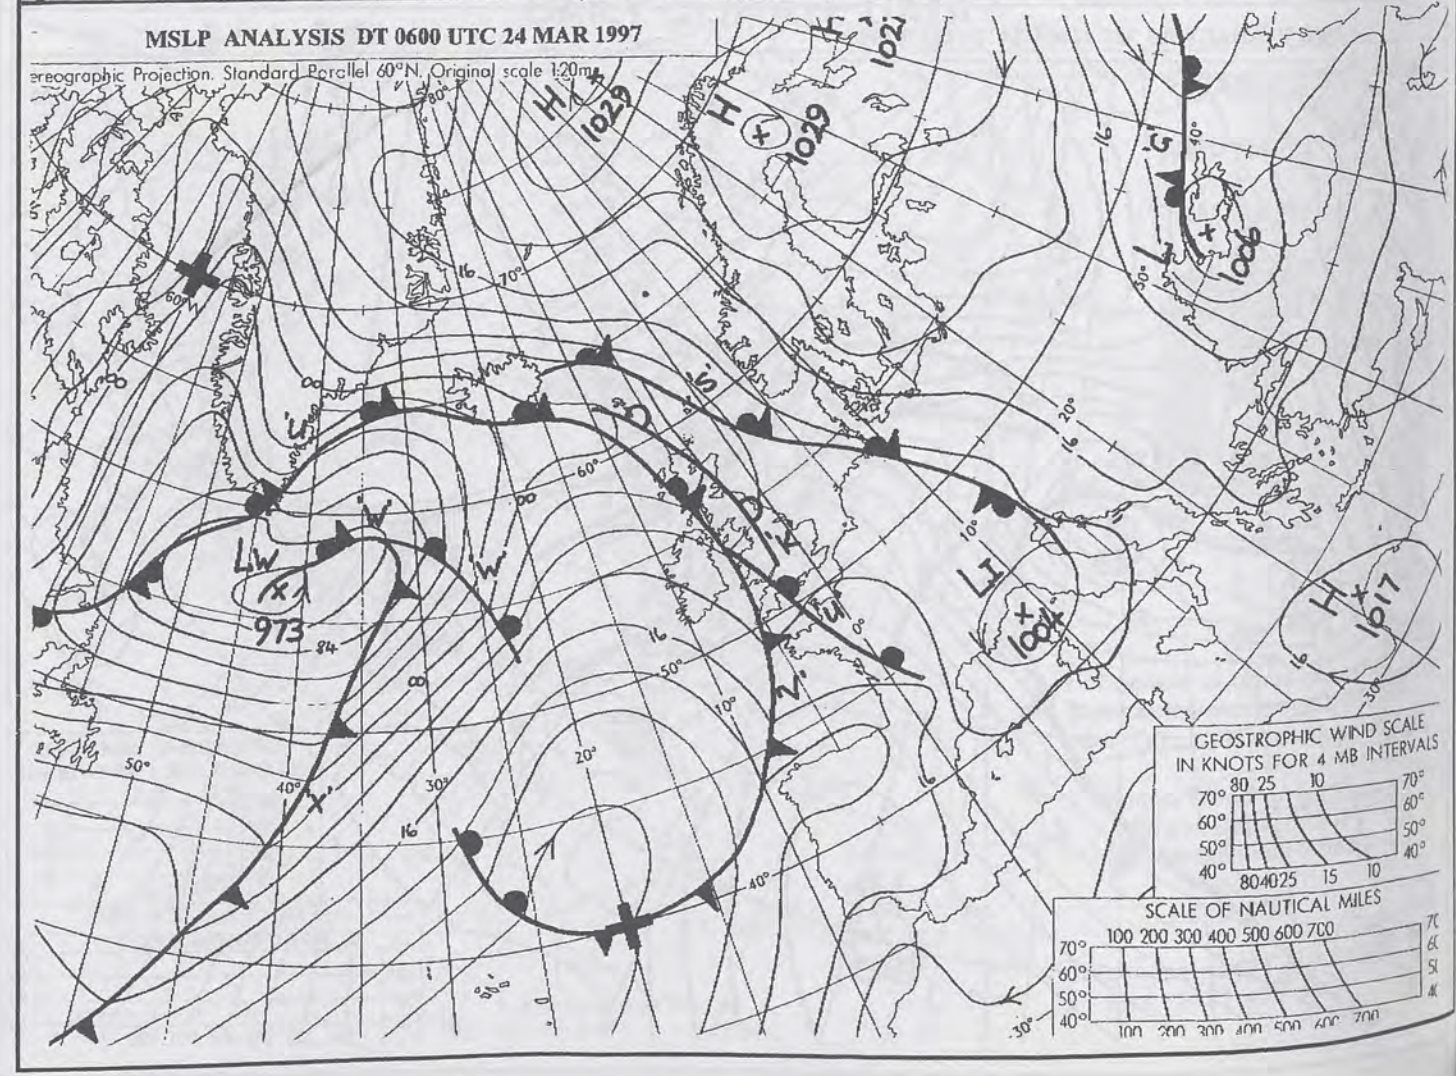 MSLP ANALYSIS DT 0600 UTC 24 MAR 1997
ereographic Projection. Standard Parallel 60°N. Original scale 1:20m
80°
H
1029
H
1029
H
1027
16
40°
16
70°
60°
L
1006
30°
'S'
20°
16
'U'
60°
10°
'W'
LW
973
W
'K'
LI
1004
H
1017
16
84
16
50°
'U'
0°
'Z'
10°
30°
50°
40°
'X'
30°
20°
16
16
40°
30°
GEOSTROPHIC WIND SCALE
IN KNOTS FOR 4 MB INTERVALS
80 25 10
70° 70°
60° 60°
50° 50°
40° 40°
80 40 25 15 10
SCALE OF NAUTICAL MILES
100 200 300 400 500 600 700
70°
60°
50°
40°
100 200 300 400 500 600 700